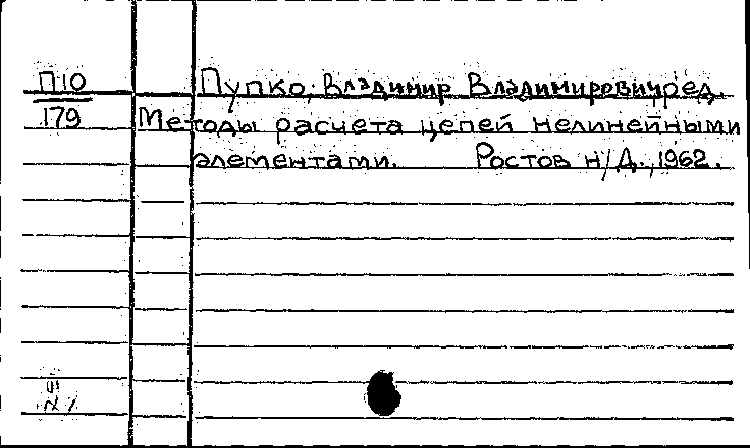 П10 Пупко, Владимир Владимирович, ред.
179 Методы расчета цепей нелинейными
элементами. Ростов н/Д., 1962.